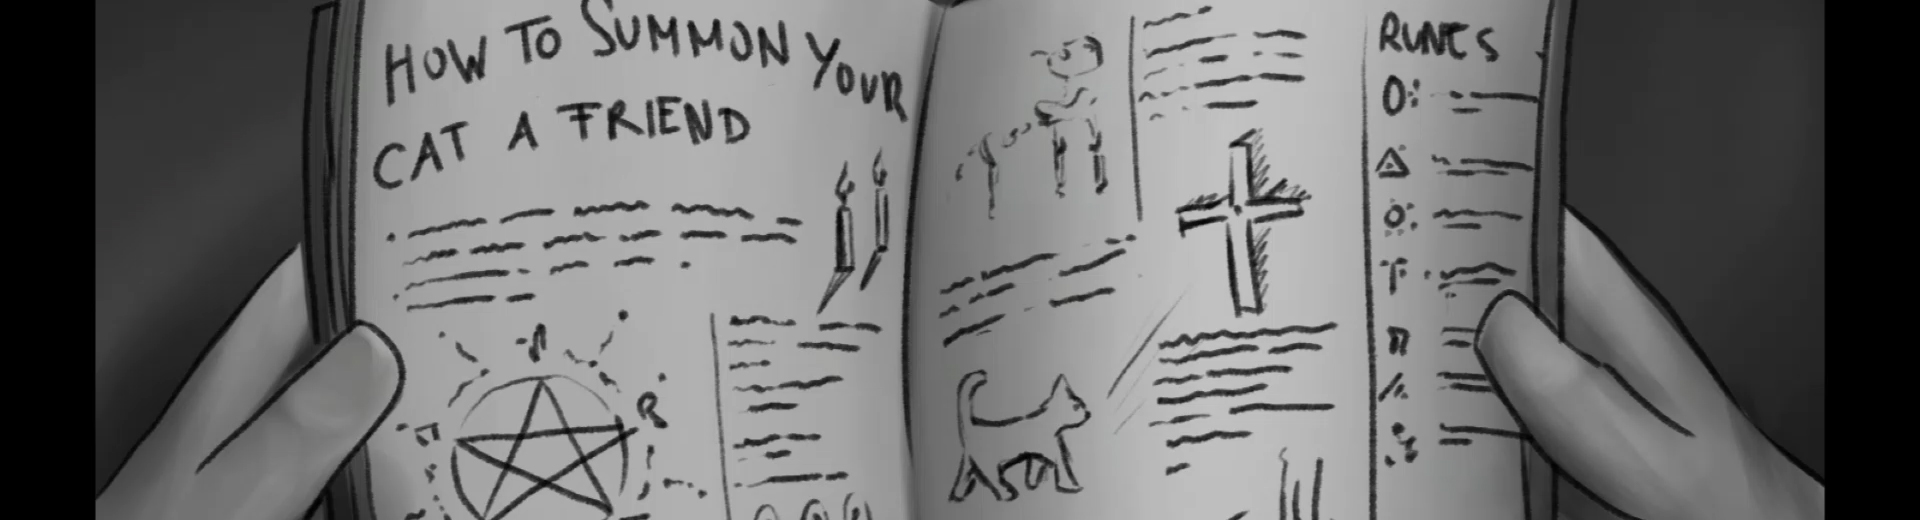 HOW TO SUMMON YOUR
CAT A FRIEND
RUNES